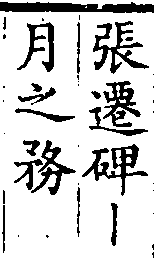 張遷碑｜
月之務